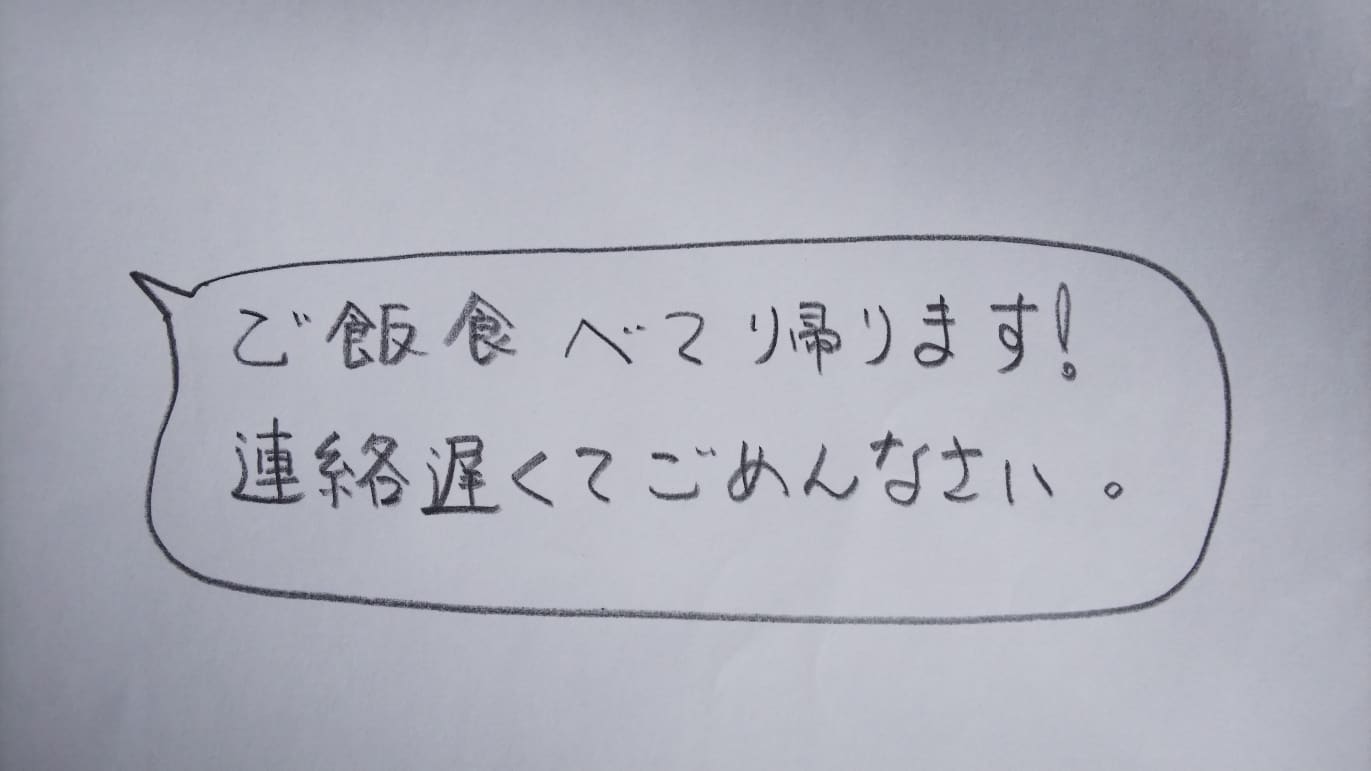 ご飯食べて帰ります!
連絡遅くてごめんなさい。